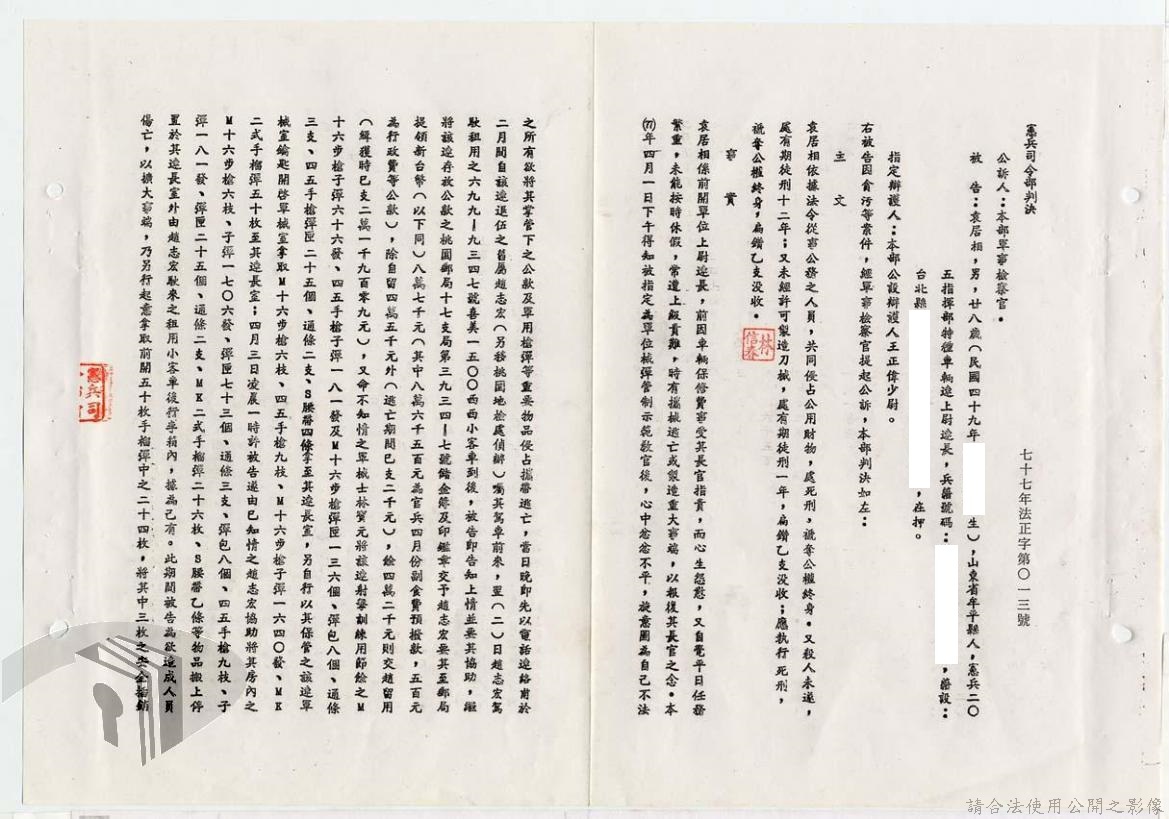 憲兵司令部判決
七十七年法正字第〇一三號
公訴人：本部軍事檢察官。
被告：袁居相，男，廿八歲（民國四十九年 生），山東省牟平縣人，憲兵二〇
五指揮部特種車輛連上尉連長，兵籍號碼： ，籍設：
台北縣 ，在押。
指定辯護人：本部公設辯護人王正偉少尉。
右被告因貪污等案件，經軍事檢察官提起公訴，本部判決如左：
主文
袁居相依據法令從事公務之人員，共同侵占公用財物，處死刑，褫奪公權終身。又殺人未遂，
處有期徒刑十二年；又未經許可製造刀械，處有期徒刑一年，扁鑽乙支沒收；應執行死刑，
褫奪公權終身，扁鑽乙支沒收。
林信春
事實
袁居相係前開單位上尉連長，前因車輛保修費事受其長官指責，而心生怨懟，又自覺平日任務
繁重，未能按時休假，常遭上級責難，時有攜械逃亡或製造重大事端，以報復其長官之念。本
(77)年四月一日下午得知被指定為單位械彈管制示範教官後，心中忿忿不平，旋意圖為自己不法
之所有欲將其掌管下之公款及軍用槍彈等重要物品侵占攜帶逃亡，當日晚即先以電話連絡甫於
二月間自該連退伍之舊屬趙志宏（另移桃園地檢處偵辦）囑其駕車前來，翌（二）日趙志宏駕
駛租用之六九九－九三四七號喜美一五〇〇西西小客車到後，被告即告知上情並要其協助，繼
將該連存放公款之桃園郵局十七支局第三九三四－七號儲金簿及印鑑章交予趙志宏要其至郵局
提領新台幣（以下同）八萬七千元（其中八萬六千五百元為官兵四月份副食費預撥款，五百元
為行政費等公款），除自留四萬五千元外（逃亡期間已支二千元），餘四萬二千元則交趙留用
（緝獲時已支二萬一千九百零九元），又命不知情之軍械士林賢元將該連射擊訓練用節餘之Ｍ
十六步槍子彈六十六發、四五手槍子彈一八一發及Ｍ十六步槍彈匣一三六個、彈包八個、通條
三支、四五手槍彈匣二十五個、通條二支、Ｓ腰帶四條拿至其連長室，另自行以其保管之該連軍
械室鑰匙開啓軍械室拿取Ｍ十六步槍六枝、四五手槍九枝、Ｍ十六步槍子彈一六四〇發、ＭＫ
二式手榴彈五十枚至其連長室；四月三日凌晨一時許被告遂由已知情之趙志宏協助將其房內之
Ｍ十六步槍六枝、子彈一七〇六發、彈匣七十三個、通條三支、彈包八個、四五手槍九枝、子
彈一八一發、彈匣二十五個、通條二支、ＭＫ二式手榴彈二十六枚、Ｓ腰帶乙條等物品搬上停
置於其連長室外由趙志宏駛來之租用小客車後行李箱內，據為己有。此期間被告為欲造成人員
傷亡，以擴大事端，乃另行起意拿取前開五十枚手榴彈中之二十四枚，將其中三枚之安全插銷
憲兵司
請合法使用公開之影像